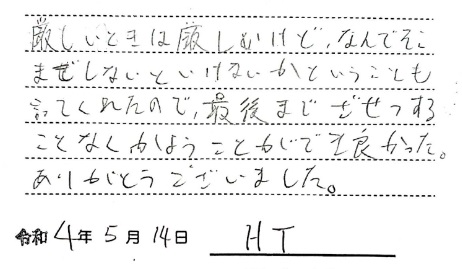 厳しいときは厳しいけど、なんでそこ
までしないといけないかということも
言ってくれたので、最後までざせつする
ことなくかようことができて良かった。
ありがとうございました。
令和4年5月14日 HT